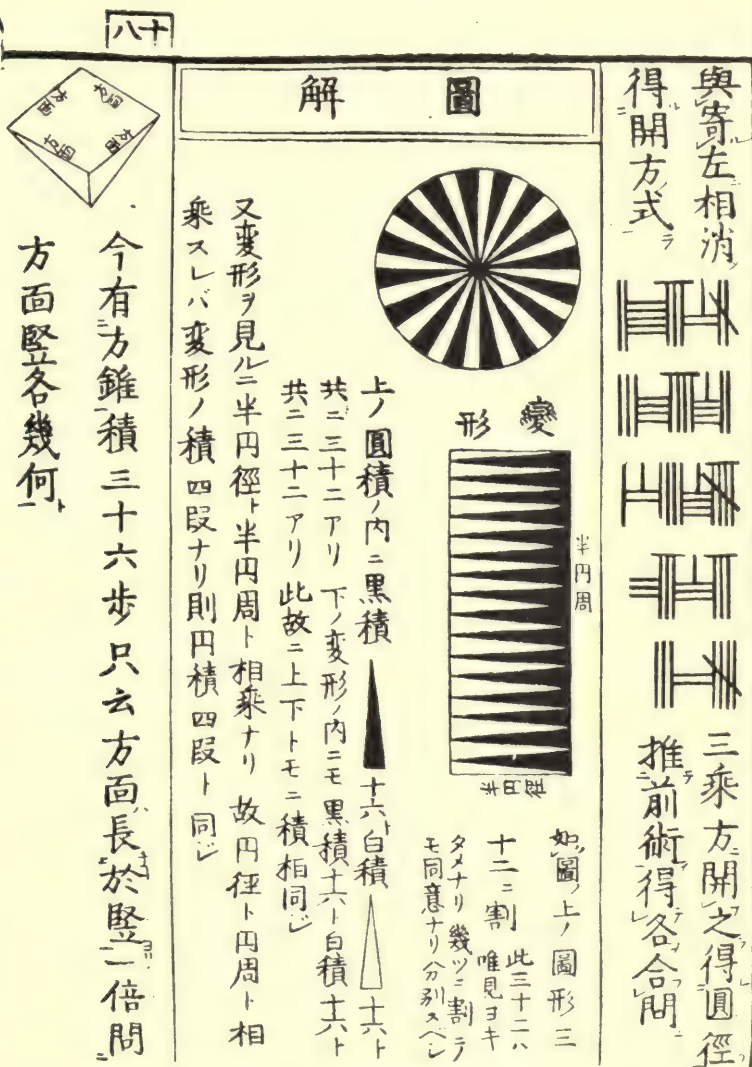 十八
與寄左相消
得開方式
三乘方開之得圓徑
推前術得各合問
圖解
變形
半円周
半円徑
如圖上ノ圖形三
十二ニ割 此三十二ハ
唯見ヨキ
タメナリ幾ツニ割テ
モ同意ナリ分別スベシ
上ノ圓積ノ内ニ黒積 十六ト白積 十六ト
共ニ三十二アリ 下ノ変形ノ内ニモ黒積十六ト白積十六ト
共ニ三十二アリ 此故ニ上下トモニ積相同じ
又変形ヲ見ルニ半円徑ト半円周ト相乘ナリ 故円徑ト円周ト相
乘スレバ変形ノ積四段ナリ則円積四段ト同じ
方面
方面
今有方錐積三十六歩只云方面長於竪一倍問
方面竪各幾何